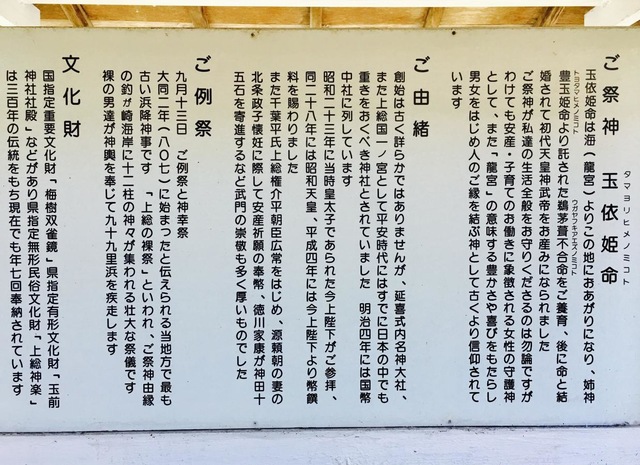 ご祭神　玉依姫命
タマヨリヒメノミコト
玉依姫命は海（龍宮）よりこの地におあがりになり、姉神
豊玉姫命より託された鵜茅葺不合命をご養育、後に命と結
トヨタマヒメノミコト
ウガヤフキアエズノミコト
婚されて初代天皇神武帝をお産みになられました
ご祭神が私達の生活全般をお守りくださるのは勿論ですが
わけても安産・子育てのお働きに象徴される女性の守護神
として、また「龍宮」の意味する豊かさや喜びをもたらし
男女をはじめ人のご縁を結ぶ神として古くより信仰されて
います
ご由緒
創始は古く詳らかではありませんが、延喜式内名神大社、
また上総国一ノ宮として平安時代にはすでに日本の中でも
重きをおくべき神社とされていました　明治四年には国幣
中社に列しています
昭和二十三年に当時皇太子であられた今上陛下がご参拝、
同二十八年には昭和天皇、平成四年には今上陛下より幣饌
料を賜わりました
また千葉平氏上総権介平朝臣広常をはじめ、源頼朝の妻の
北条政子懐妊に際して安産祈願の奉幣、徳川家康が神田十
五石を寄進するなど武門の崇敬も多く厚いものでした
ご例祭
九月十三日　ご例祭と神幸祭
大同二年（八〇七）に始まったと伝えられる当地方で最も
古い浜降神事です　「上総の裸祭」といわれ、ご祭神由縁
の釣ヶ崎海岸に十二社の神々が集われる壮大な祭儀です
裸の男達が神輿を奉じて九十九里浜を疾走します
文化財
国指定重要文化財「梅樹双雀鏡」県指定有形文化財「玉前
神社社殿」などがあり県指定無形民俗文化財「上総神楽」
は三百年の伝統をもち現在でも年七回奉納されています